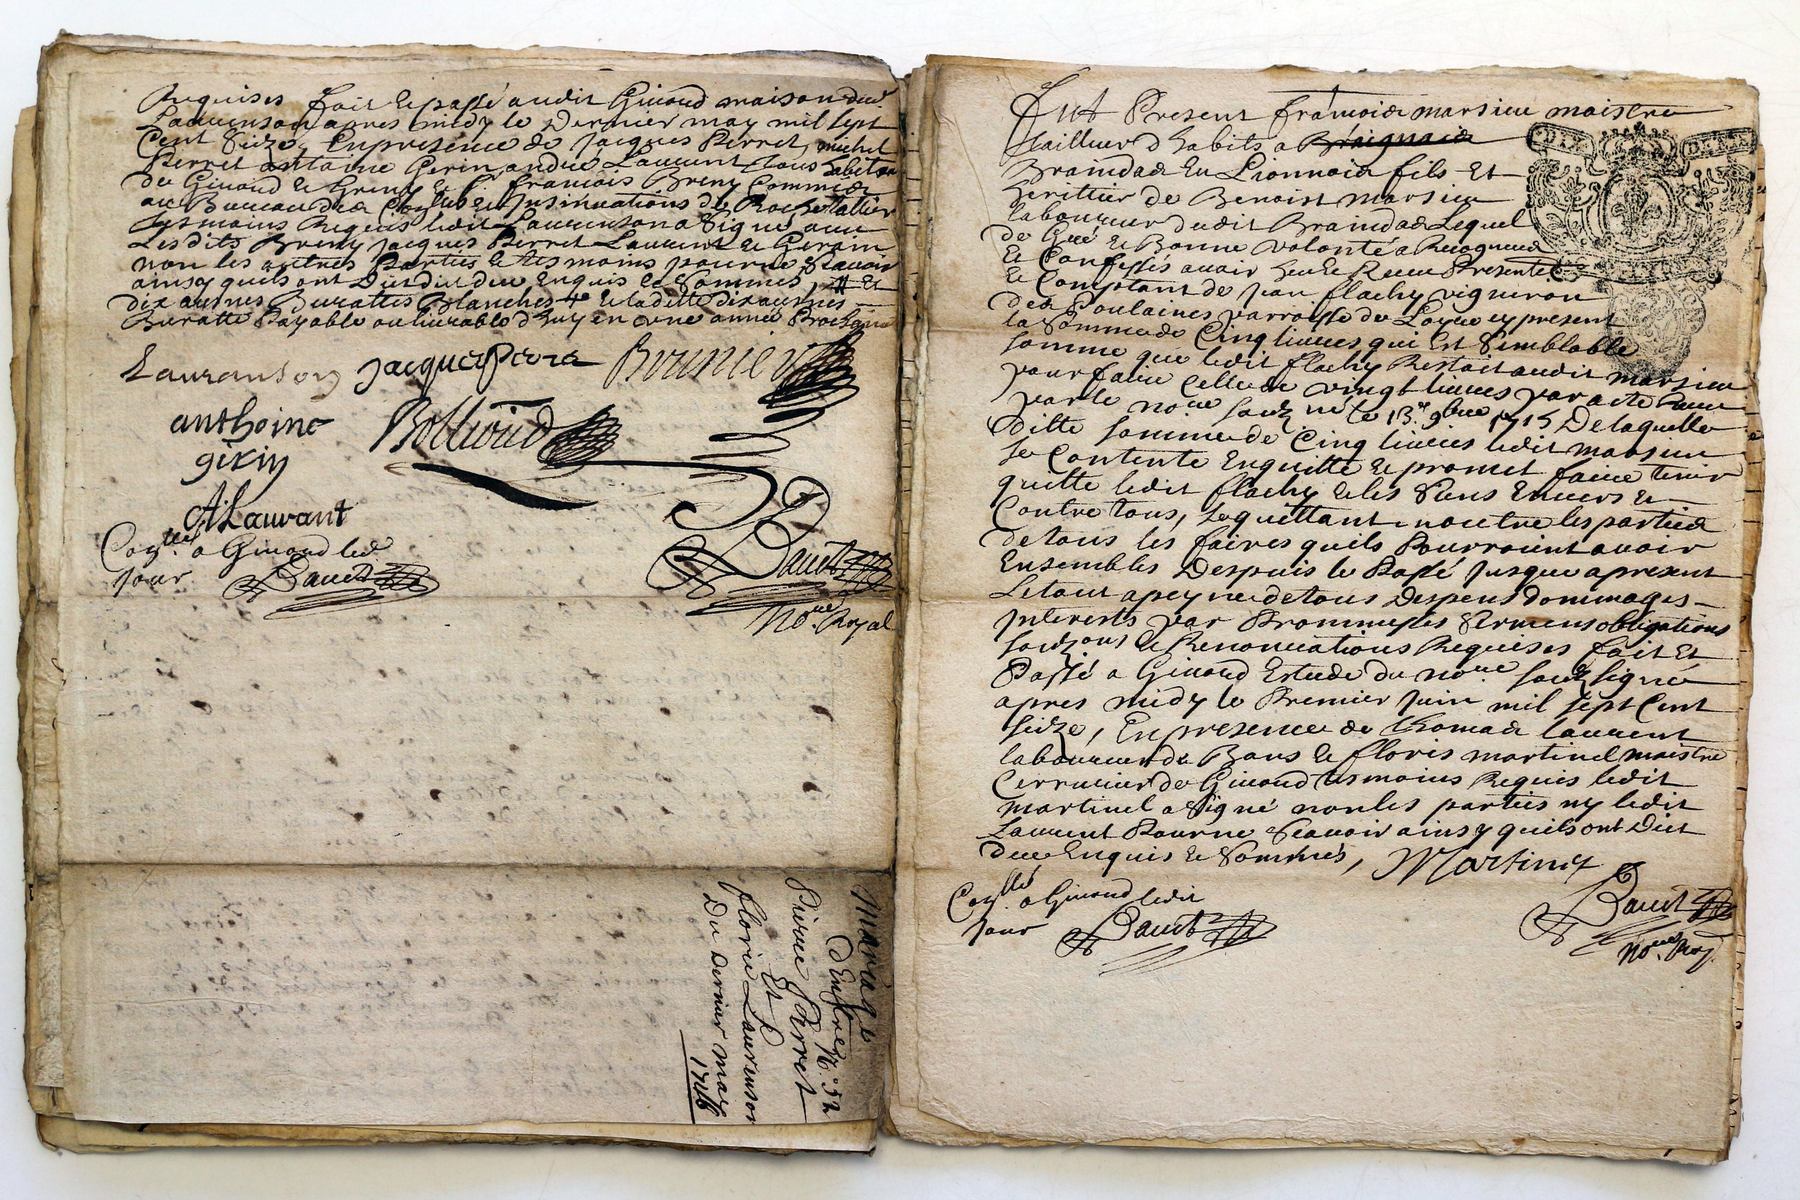 Requises fait & passé audit Giuord maison dud.
Laurenson apres midy le Dernier may mil sept
Cent Seize, En presence de Jacques Perret, michel
Perret antoine Gerin, andré Laurent, tous habitans
de Giuord & Greny & Sr. françois Breny Commis
au Bureau des & Insinuations de Rochetallier
tesmoins Requis ledit Laurenson a Signé auec
Lesdits Breny Jacques Perret Laurent & Gerain
non les autres Parties & tesmoins pour ne Scauoir
ainsy quils ont Dit du deu Enquis & Sommes, Et
dix aulnes Buratte Blanches & laditte dix aulnes
Buratte Payable ou liurable d'huy en une année Prochaine
Lauranson Jacque Perra Bounier
anthoine Bollioud
girin
A Laurant
Con.llé a Giuord led.
jour Baudt
Baudt
No.re Royal
Mariage
d'Entre N.o 52
Pierre Perret
Et
florie Laurenson
Du Dernier may
1716
Fut Present françois marsieu maistre
tailleur d habits a
Braindas En Lionnois fils Et
heritier de Benoist marsieu
laboureur dudit Braindas Lequel
de Gré & Bonne volonté a Recogneu
& Confessés auoir heu & Receu Presente
& Comptant de Jean flachy vigneron
des Poulaines parroisse de Loyre cy present
la Somme de Cinq liures qui Est Semblable
somme que ledit flachy Restait audit marsieu
pour faire Celle de vingt liures par acte Receu
par le no.re soubz.né le 13.e 9bre 1715 De laquelle
ditte somme de Cinq liures ledit marsieu
se Contente En quitte & promet faire tenir
quitte ledit flachy & les Siens Enuers &
Contre tous, Se quittant en outre les parties
de tous les faires quils Pourroient auoir
Ensembles Despuis le Passé Jusque a present
Le tout a peyne de tous Despens dommages
Interests par Prommesses Sermens obligations
soubz.ons & Renonciations Requises fait Et
Passé a Giuord Estude du no.re soubz signé
apres midy le Premier Juin mil sept Cent
seize, En presence de thomas laurent
laboureur de Bans & floris martinel maistre
Cerrurier de Giuord tesmoins Requis ledit
martinel a Signé non les parties ny ledit
Laurent Pour ne Scauoir ainsy quils ont Dict
deue Enquis & Sommés, Martinel
Con.llé a Giuord ledit
jour Baudt
Baudt
No.re Roy.